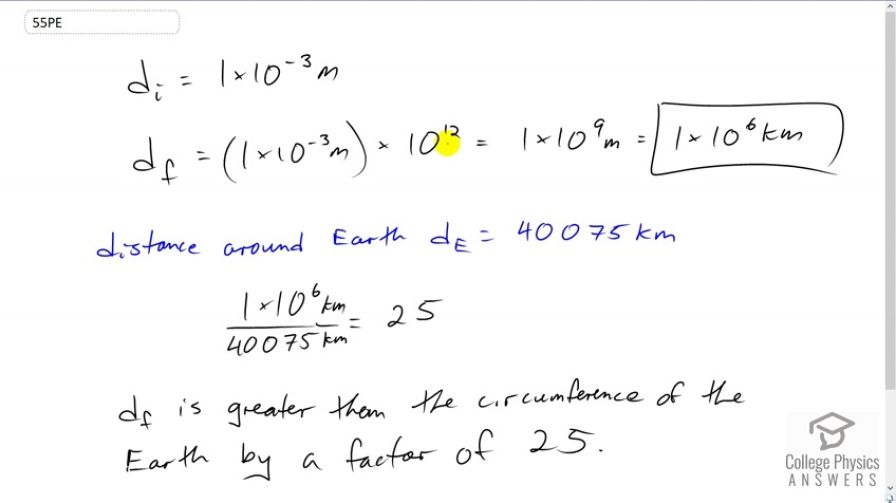 55PE
dᵢ = 1×10⁻³ m
d_f = (1×10⁻³ m) × 10¹² = 1×10⁹ m = 1×10⁶ km
distance around Earth d_E = 40075 km
1×10⁶ km
40075 km = 25
d_f is greater them the circumference of the
Earth by a factor of 25.
College Physics
ANSWERS